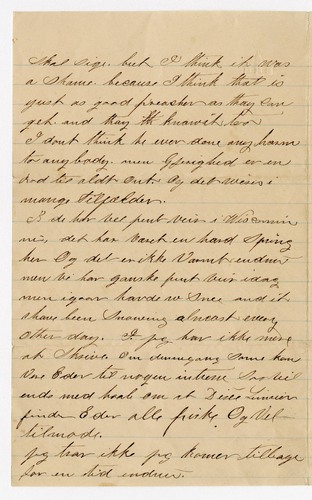 skal sige. but I think it was
a shame. because I think that is
yust as good preacher as thay can
get. and thay th know it too
I dont think he ever done any harm
to anybody. men Gjerighed er en
rod til aldt ont. Og det vises i
mange tilfælder.
I de har vel pent veir i Wisconsin
nu, det har varet en hard Spring
her Og det er ikke varmt endnu
men vi har ganske pent veir idag
men igaar havde vi Snee. and it
shave been Snowing almost every
other day. Ja jeg har ikke mere
at skrive om denne gang Some kan
vere Eder til nogen intrest. Saa vil
ende med haab om at Disse Linier
finder Eder alle friske Og Vel-
tilmode.
jeg tror ikke jeg komer tilbage
for en tid endnu.